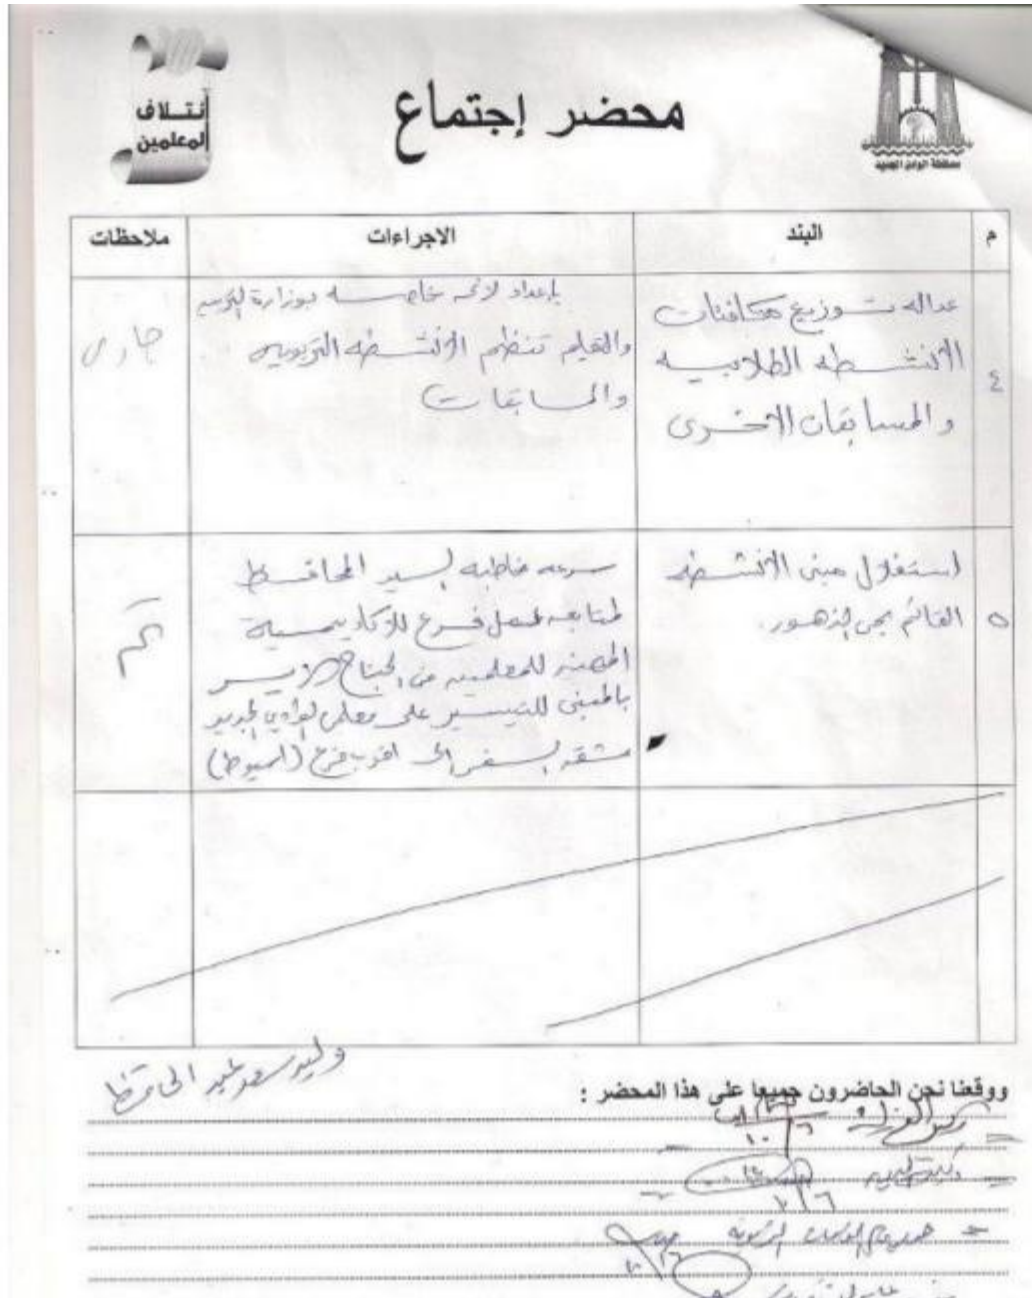 ائتلاف
المعلمين
محضر إجتماع
محافظة الوادى الجديد
م البند الاجراءات ملاحظات
٤
عداله توزيع مكافئات
الانشطه الطلابيه
والمسابقات الاخرى
بإعداد لائحه خاصه بوزارة التربيه
والتعليم تنظم الانشطه التربويه
والمسابقات
جارى
٥
استغلال مبنى الانشطه
القائم بحى الزهور.
سرعه مخاطبه السيد المحافظ
لمتابعه عمل فرع للاكاديميه
المهنيه للمعلمين فى الجناح الايسر
بالمبنى للتيسير على معلمى الوادى الجديد
مشقه السفر الى اقرب فرع (اسيوط)
تم
وليد سعد عبد الحافظ
ووقعنا نحن الحاضرون جميعا على هذا المحضر :